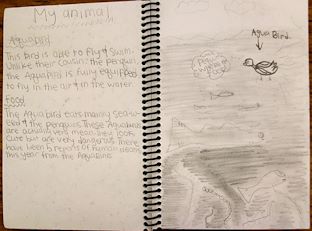 My animal
Aquabird
This bird is able to fly & swim.
Unlike their cousin: the penguin,
the Aquabird is fully equipped
to fly in the air & in the water.
Food
The Aqua bird eats mainly sea-w
eed & the penguins. These Aquabirds
are actually very mean they look
cute but are very dangerous. There
have been 5 reports of human deaths
this year from the Aquabird.
Aqua Bird